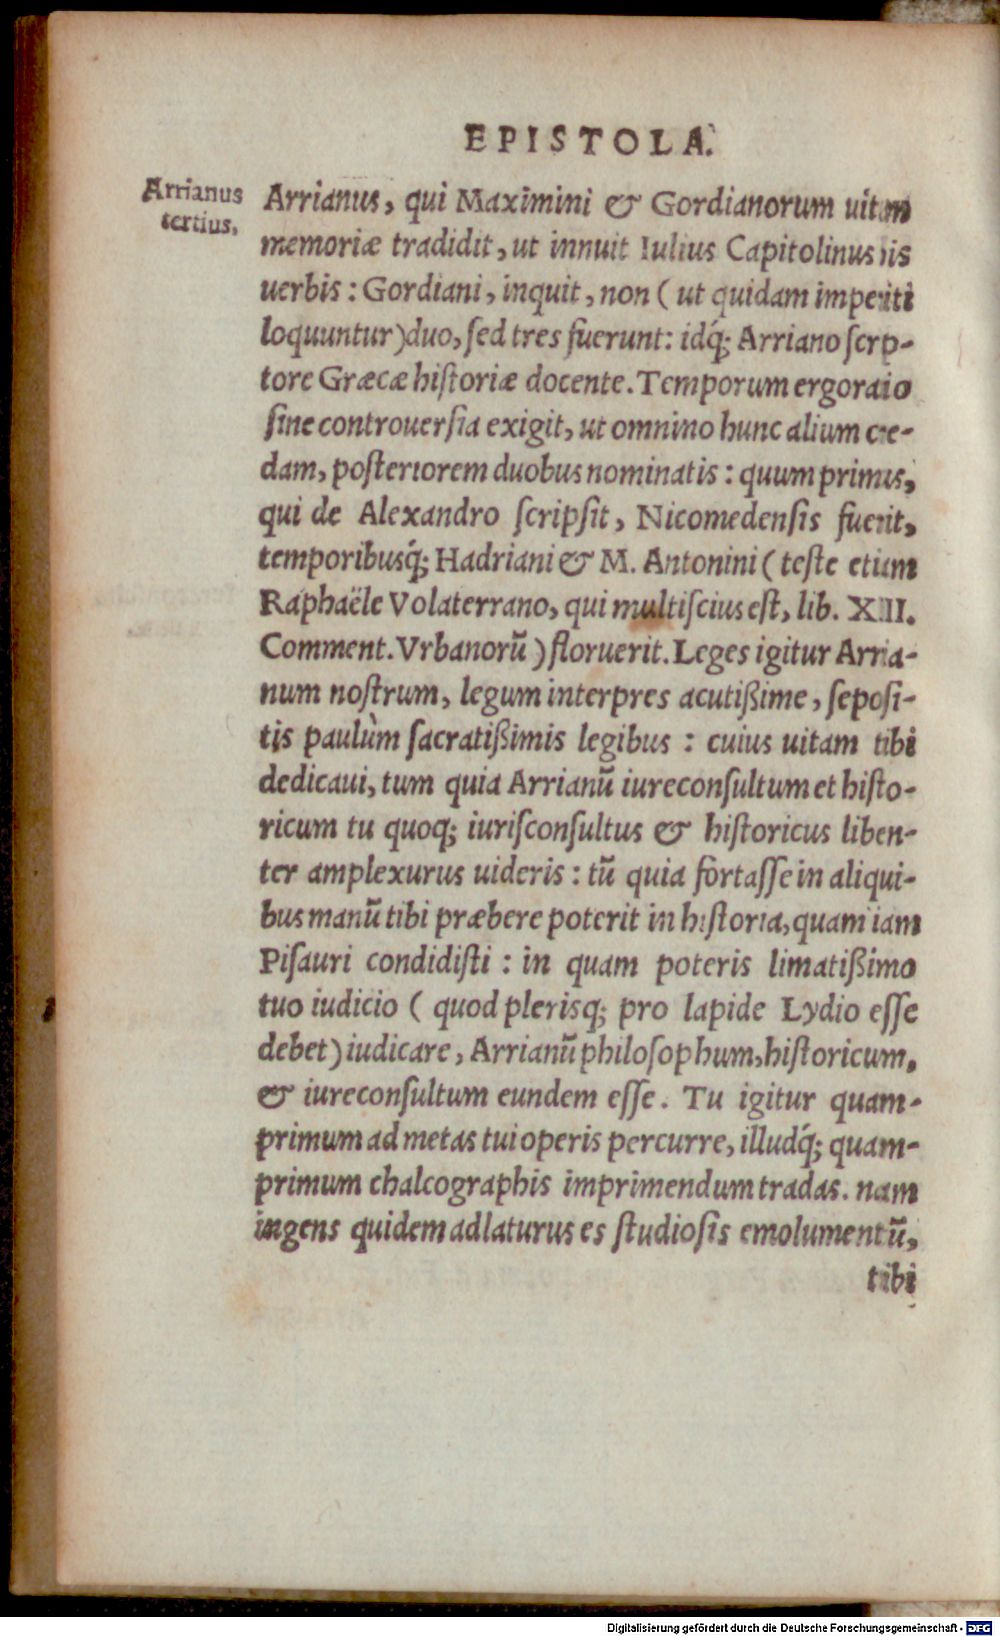 EPISTOLA.
Arrianus
tertius.
Arrianus, qui Maximini & Gordianorum uitam
memoriæ tradidit, ut innuit Iulius Capitolinus his
uerbis: Gordiani, inquit, non ( ut quidam imperiti
loquuntur) duo, sed tres fuerunt: idq́; Arriano scrp-
tore Græcæ historiæ docente. Temporum ergo raio
sine controuersia exigit, ut omnino hunc alium cre-
dam, posteriorem duobus nominatis: quum primus,
qui de Alexandro scripsit, Nicomedensis fuerit,
temporibusq́; Hadriani & M. Antonini ( teste etiam
Raphaële Volaterrano, qui multiscius est, lib. XIII.
Comment. Vrbanorũ ) floruerit. Leges igitur Arria-
num nostrum, legum interpres acutißime, seposi-
tis paulùm sacratißimis legibus : cuius uitam tibi
dedicaui, tum quia Arrianũ iureconsultum et histo-
ricum tu quoq; iurisconsultus & historicus liben-
ter amplexurus uideris : tũ quia fortasse in aliqui-
bus manũ tibi præbere poterit in historia, quam iam
Pisauri condidisti : in quam poteris limatißimo
tuo iudicio ( quod plerisq; pro lapide Lydio esse
debet) iudicare, Arrianũ philosophum, historicum,
& iureconsultum eundem esse. Tu igitur quam-
primum ad metas tui operis percurre, illudq́; quam-
primum chalcographis imprimendum tradas. nam
ingens quidem adlaturus es studiosis emolumentũ,
tibi
Digitalisierung gefördert durch die Deutsche Forschungsgemeinschaft - DFG